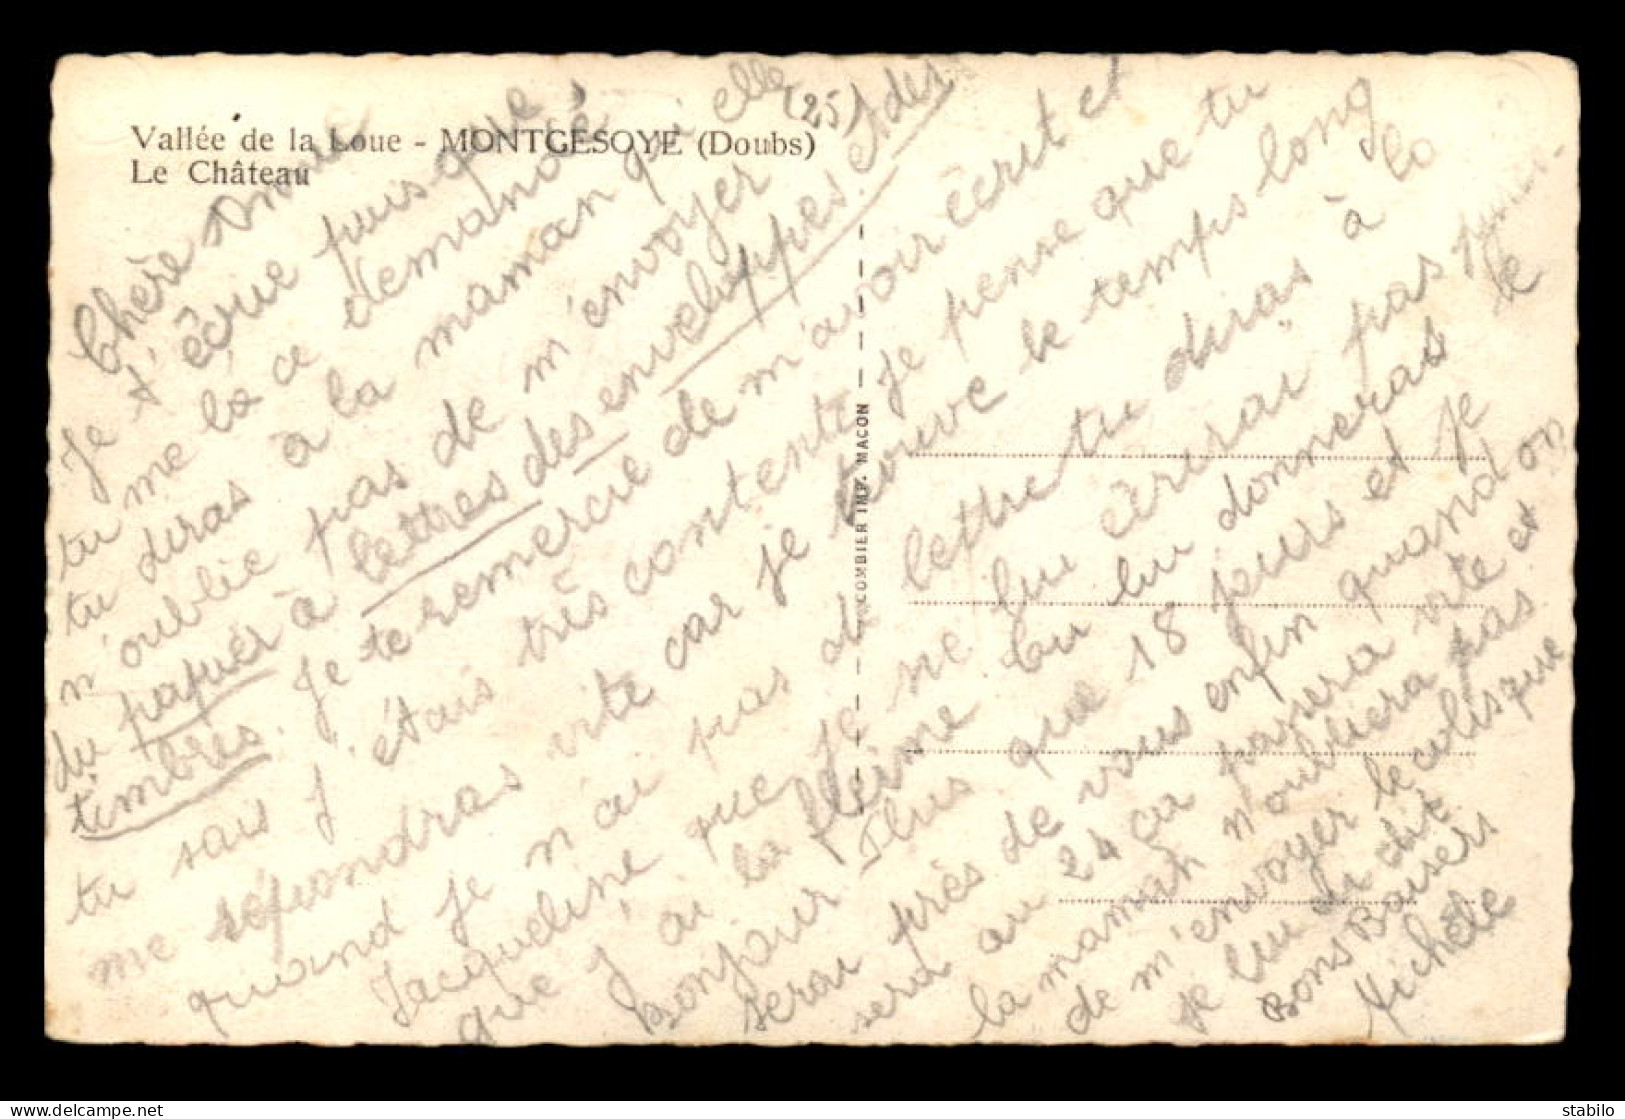 Vallée de la Loue - MONTGESOYE (Doubs)
Le Château
(25)
COMBIER IMP. MACON
Chère Annie
Je t'écrie puis que
tu me la ce demandé
tu diras à la maman qu'elle
n'oublie pas de m'envoyer
du papier à lettres des enveloppes et des
timbres. Je te remercie de m'avoir écrit et
tu sais j'étais très contente je pense que tu
me répondras vite car je trouve le temps long
quand je n'ai pas de lettre tu diras à la
Jacqueline que je ne lui écrirai pas
que j'ai la fleime tu lui donneras le
Bonjour Plus que 18 jours et je
serai près de vous enfin quand on
sera au 24 ca passera vite et
la maman n'oubliera pas
de m'envoyer le
je lui ai dit
Bons Baisers
Michèle
delcampe.net
stabilo